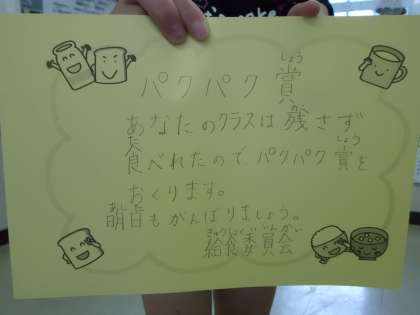 パクパク賞
あなたのクラスは残さず
食べれたのでパクパク賞を
おくります。
明日もがんばりましょう。
給食委員会